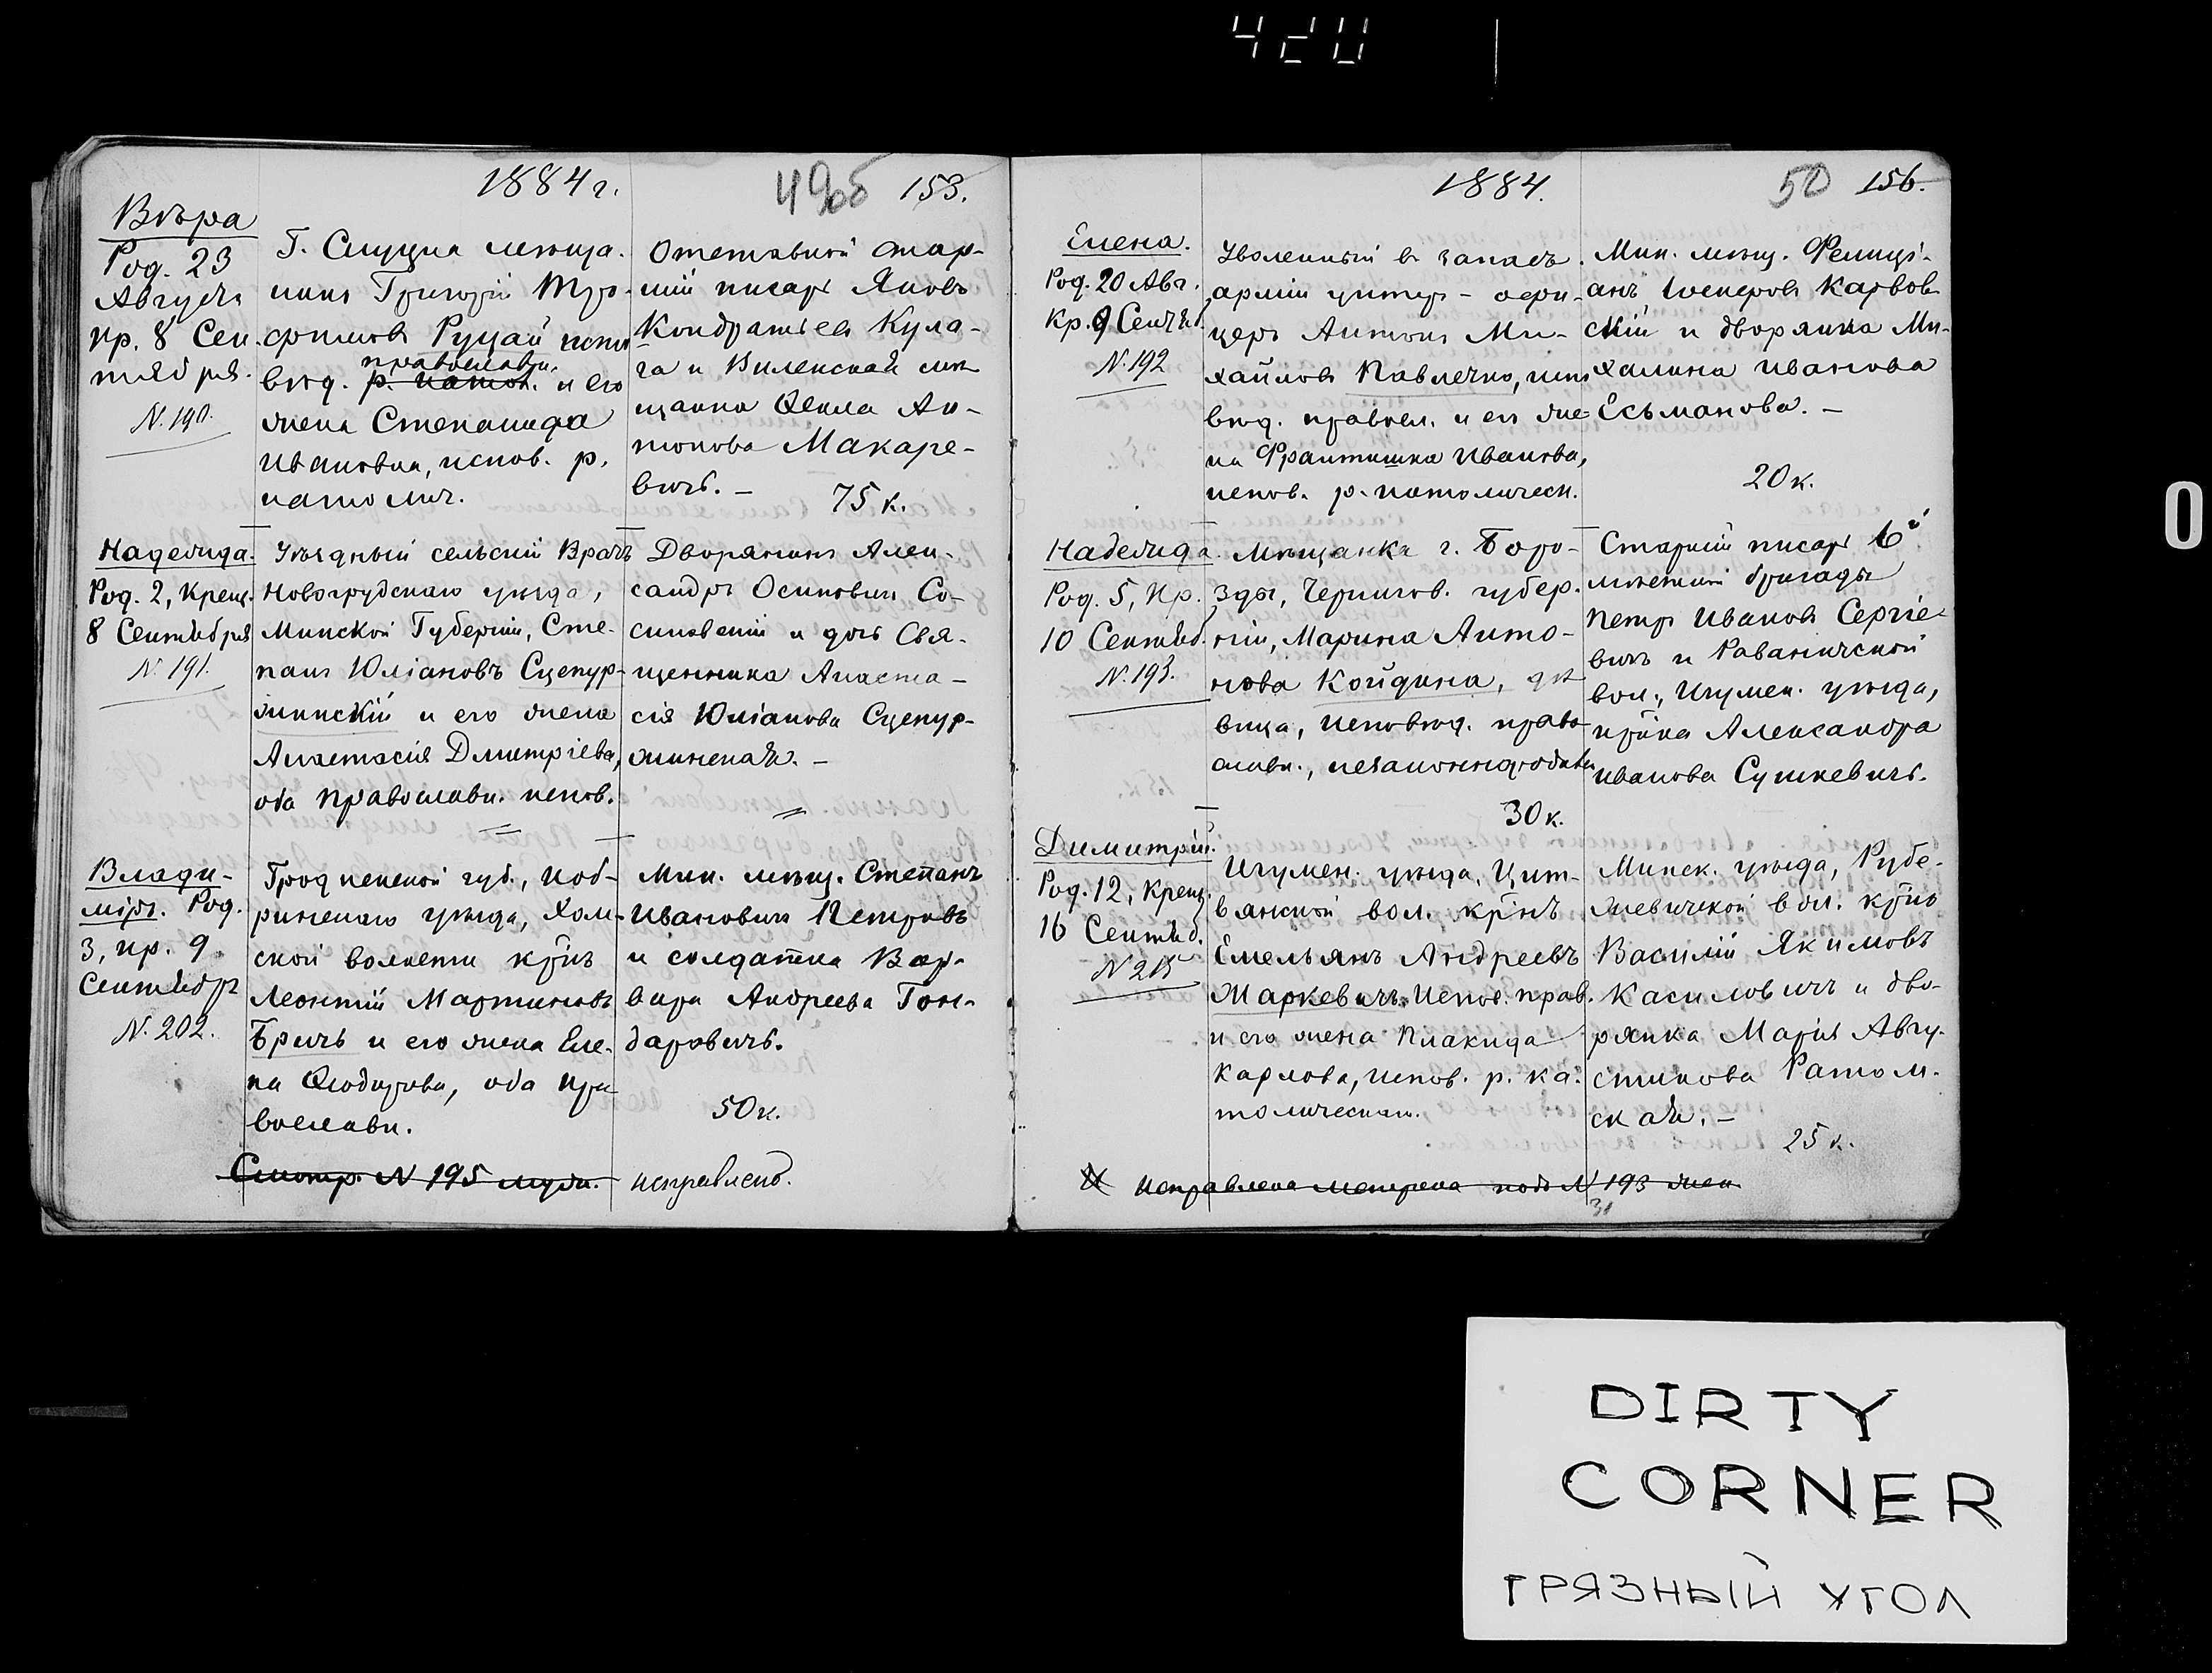 420
1884 г.
49об 153.
Вѣра
Род. 23
Августа
кр. 8 Сен
тября.
N. 190.
Г. Слуцка мѣща.
нинъ Григорій Тро-
фимовъ Руцай испо
православн.
вѣд. р. катол. и его
жена Степанида
Иванова, испов. р.
католич.
Отставной стар-
шій писарь Яковъ
Кондратьевъ Кула-
га и Виленская мѣ
щанка Ѳекла Ан-
тонова Макаре-
вичъ. —
75 к.
Надежда.
Род. 2, Крещ.
8 Сентября
N. 191.
Уѣздный сельскій Врачъ
Новогрудскаго уѣзда,
Минской Губерніи, Сте-
панъ Юліановъ Сцепур-
жинскій и его жена
Анастасія Дмитріева,
оба православн. испов.
Дворянинъ Алек-
сандръ Осиповичъ Со-
синовскій и дочь Свя-
щенника Анаста-
сія Юліанова Сцепур-
жинская. —
Влади-
міръ. Род.
3, кр. 9
Сентября
N. 202.
Гродненской губ., Коб-
ринскаго уѣзда, Хом-
ской волости кр̃нъ
Леонтій Мартиновъ
Бричъ и его жена Еле-
на Ѳеодорова, оба пра
вославн.
Мин. мѣщ. Степанъ
Ивановичъ Петровъ
и солдатка Вар-
вара Андреева Гон-
даровичъ.
50 к.
Смотр. N 195 муж. исправлено.
1884.
50 156.
Елена.
Род. 20 Авг.
Кр. 9 Сентяб.
N. 192
Уволенный въ запасъ
арміи унтеръ-офи-
церъ Антонъ Ми-
хайловъ Павлечко, испо
вѣд. правосл. и его же-
на Франтишка Иванова,
испов. р.-католическ.
Мин. мѣщ. Феликсі-
анъ Карвов
скій и дворянка Ми-
халина Иванова
Есьманова. —
20 к.
Надежда.
Род. 5, Кр.
10 Сентяб.
N. 193.
Мѣщанка г. Боро-
зды, Чернигов. губер.
ніи, Марина Анто-
нова Койдина, дѣ
вица, исповѣд. право
славн., незаконнорожден
30 к.
Старшій писарь 16й
мѣстной бригады
Петръ Ивановъ Сергіе-
вичъ и Раваничской
вол., Игумен. уѣзда,
кр̃нка Александра
Иванова Сушкевичъ.
Димитрій.
Род. 12, Крещ.
16 Сентяб.
N 215
Игумен. уѣзда, Цит-
вянской вол. кр̃нъ
Емельянъ Андреевъ
Маркевичъ, испов. прав.
и его жена Плакида
Карлова, испов. р. ка-
толическаго.
Минск. уѣзда, Рубе-
жевичской вол. кр̃нъ
Василій Якимовъ
Касиловичъ и дво-
рянка Марія Авгу-
стинова Ратом-
ская. —
25 к.
Исправлена метрика подъ N 193 жен
31
0
DIRTY
CORNER
ГРЯЗНЫЙ УГОЛ